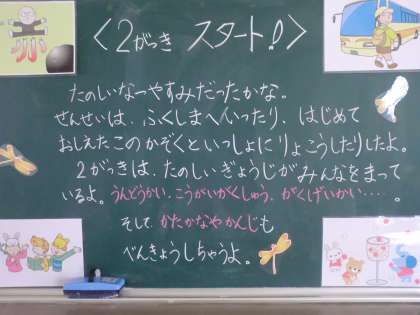 ＜2がっき スタート！＞
たのしいなつやすみだったかな。
せんせいは、ふくしまへいったり、はじめて
おしえたこのかぞくといっしょにりょこうしたりしたよ。
2がっきは、たのしいぎょうじがみんなをまって
いるよ。うんどうかい、こうがいがくしゅう、がくげいかい……。
そして、かたかなやかんじも
べんきょうしちゃうよ。